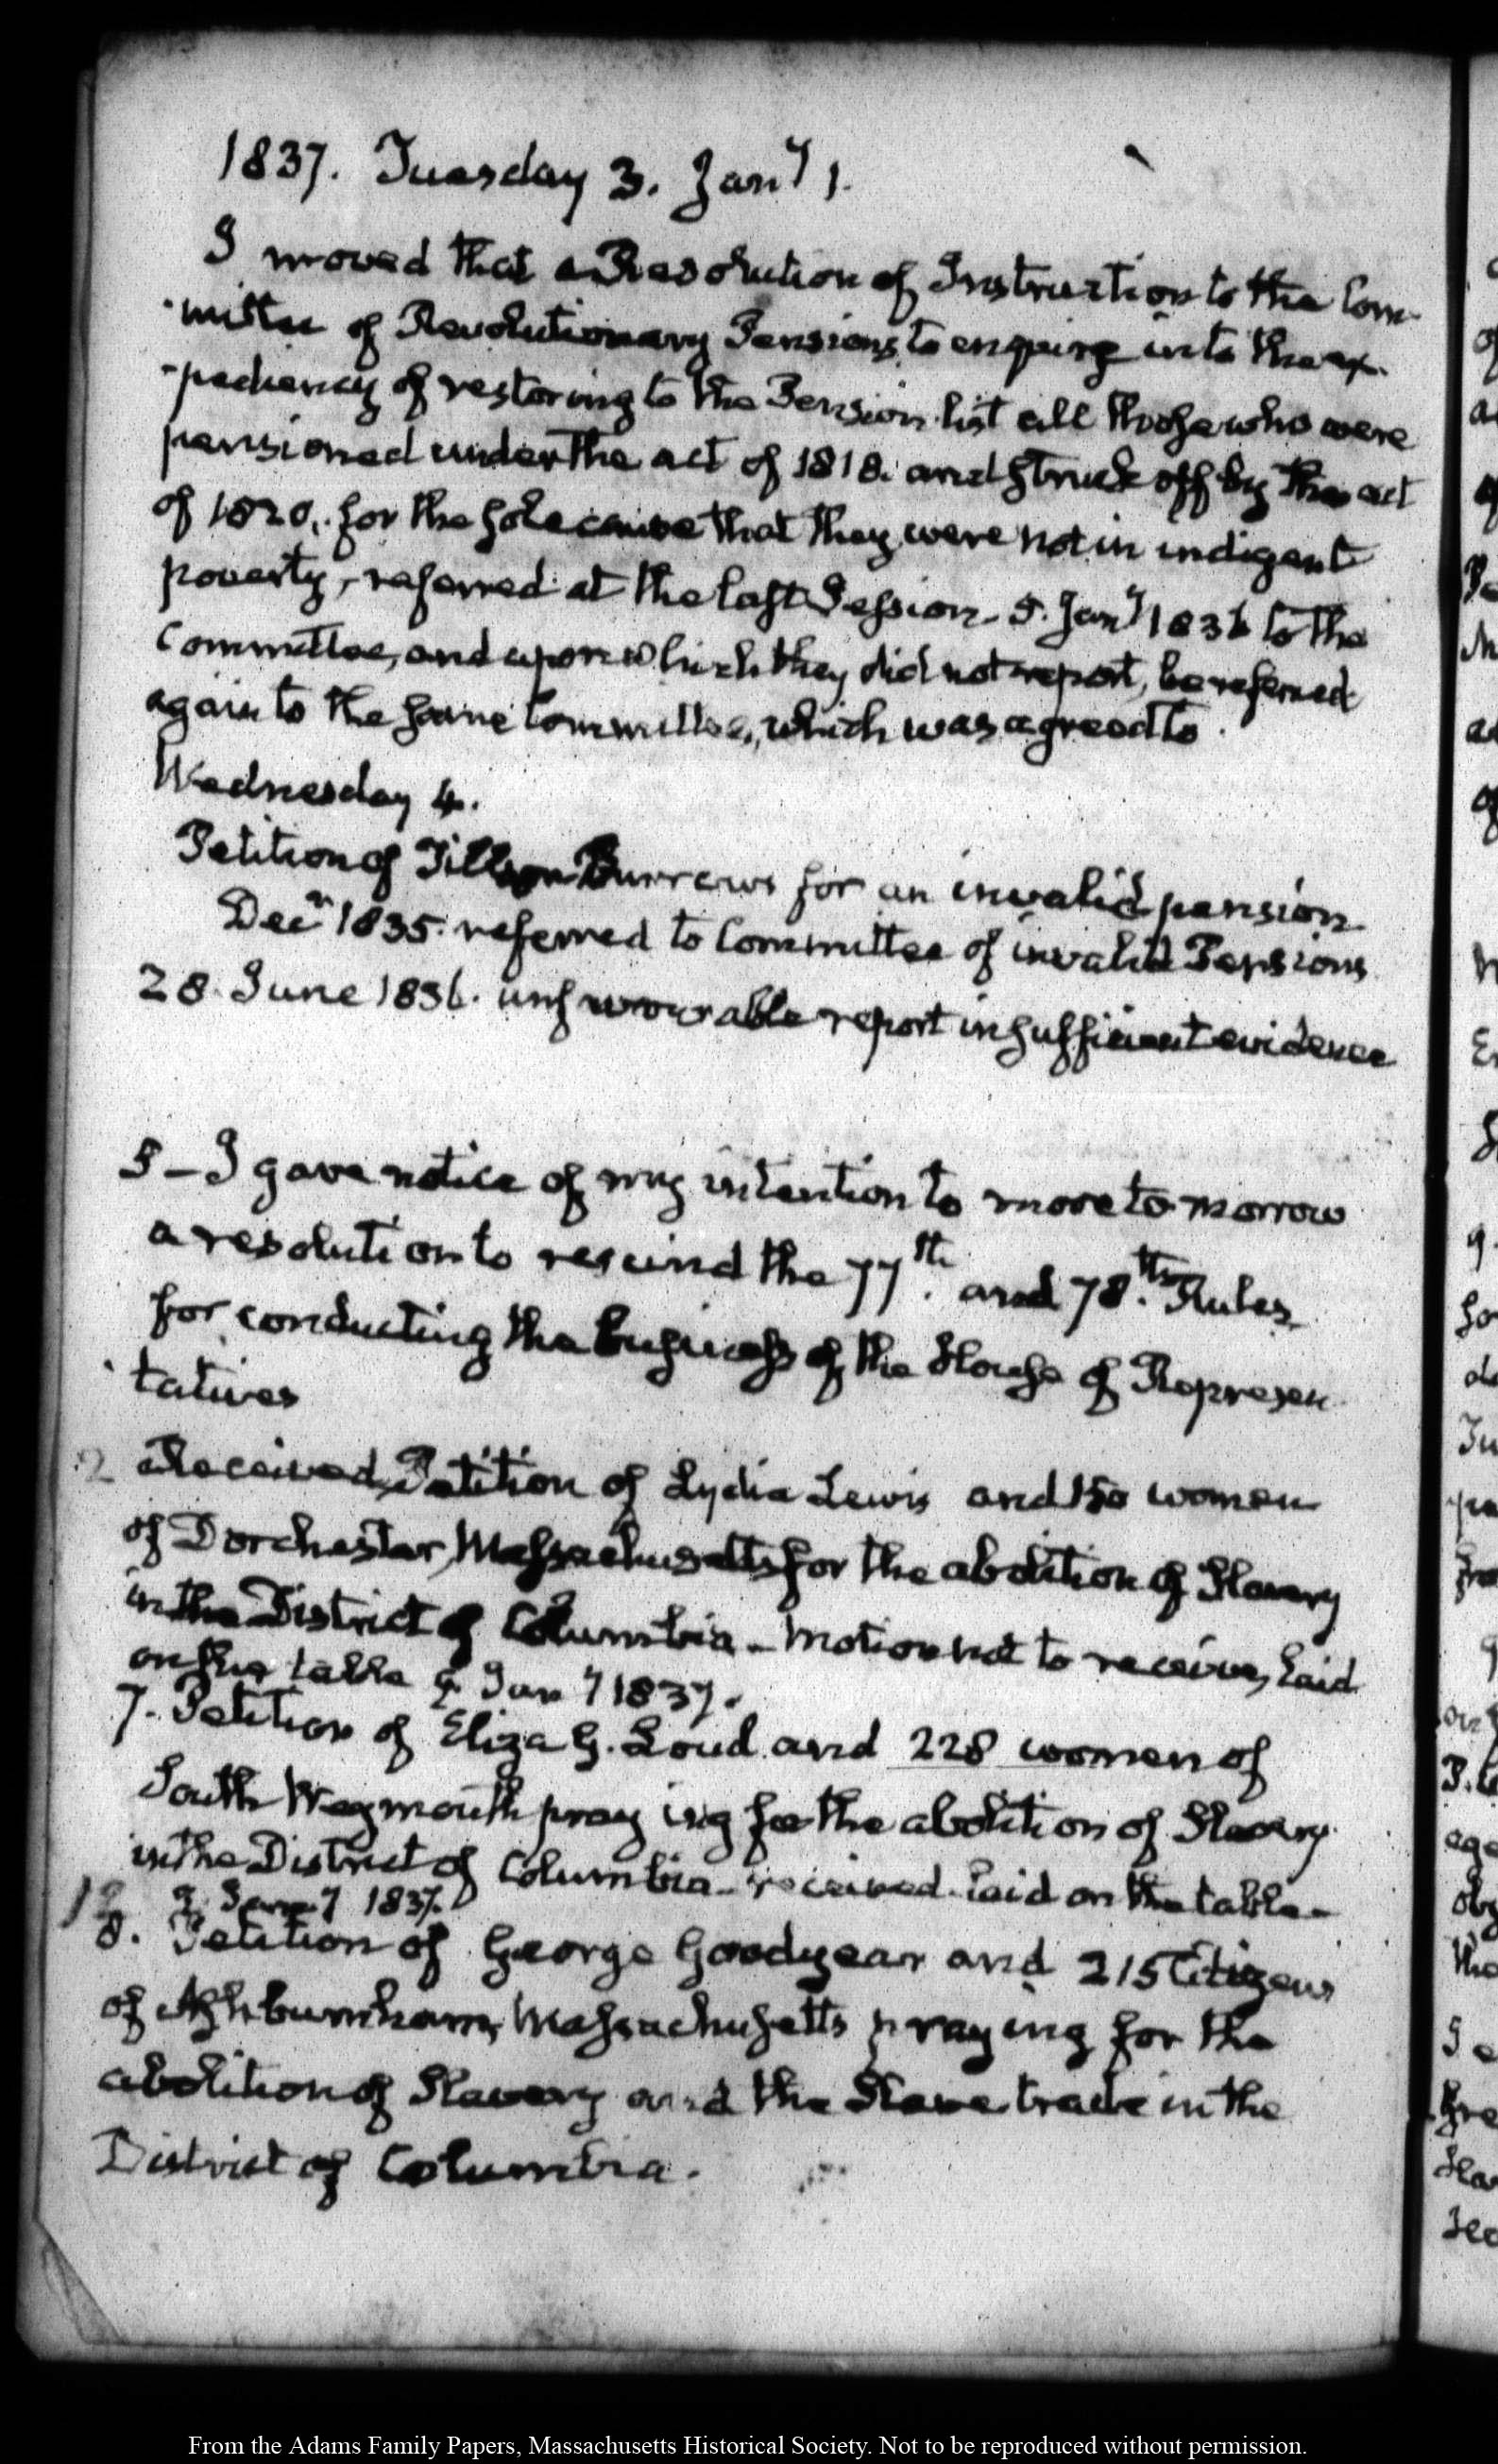 1837. Tuesday 3. Jany 1.
I moved that a Resolution of Instruction to the Com-
-mittee of Revolutionary Pensions, to enquire into the ex-
-pediency of restoring to the Pension list all those who were
pensioned under the act of 1818. and struck off by the act
of 1820, for the sole cause that they were not in indigent
poverty, referred at the last Session. 5. Jany 1836 to the
Committee, and upon which they did not report, be referred
again to the same Committee, which was agreed to.
Wednesday 4.
Petition of Burrows for an invalid pension
Decr 1835. referred to Committee of invalid Pensions
28. June 1836. unfavourable report insufficient evidence
5 – I gave notice of my intention to move to-morrow
a resolution to rescind the 77th. and 78.th Rules
for conducting the business of the House of Represen
tatives
2 Received, Petition of Lydia Lewis and 150 women
of Dorchester, Massachusetts for the abolition of Slavery
in the District of Columbia – Motion not to receive, laid
on the table 9 Jany 1837.
7. Petition of Eliza G. Loud and 228 women of
South Weymouth praying for the abolition of Slavery
in the District of Columbia – received. laid on the table –
9 Jany 1837.
8. Petition of George Goodyear and 215 Citizens
of Ashburnham, Massachusetts praying for the
abolition of Slavery and the Slave trade in the
District of Columbia.
From the Adams Family Papers, Massachusetts Historical Society. Not to be reproduced without permission.